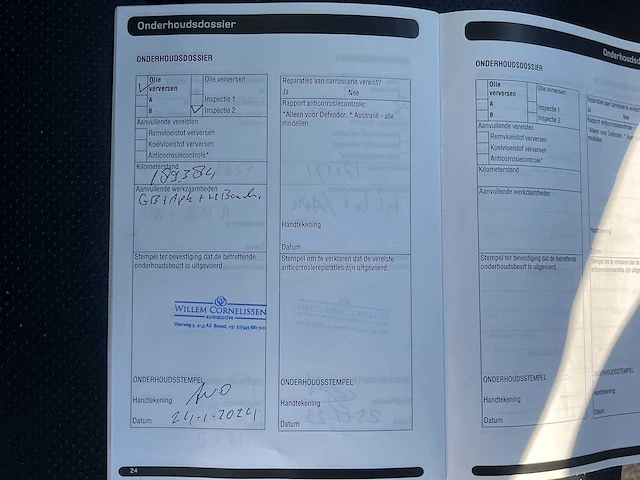 Onderhoudsdossier
ONDERHOUDSDOSSIER
Olie verversen
Olie verversen
A
Inspectie 1
B
Inspectie 2
Aanvullende vereisten
Remvloeistof verversen
Koelvloeistof verversen
Anticorrosiecontrole*
Kilometerstand
189384
Aanvullende werkzaamheden
GB + Apk + 4 Banden
Stempel ter bevestiging dat de betreffende
onderhoudsbeurt is uitgevoerd
WILLEM CORNELISSEN
automotive
ONDERHOUDSSTEMPEL
Handtekening
Datum
24-1-2024
Reparaties aan carrosserie vereist?
Ja Nee
Rapport anticorrosiecontrole:
*Alleen voor Defender. * Australië - alle
modellen
Handtekening
Datum
Stempel om te verklaren dat de vereiste
anticorrosiereparaties zijn uitgevoerd
ONDERHOUDSSTEMPEL
Handtekening
Datum
24
ONDERHOUDSDOSSIER
Olie
verversen
Olie verversen
A
Inspectie 1
B
Inspectie 2
Aanvullende vereisten
Remvloeistof verversen
Koelvloeistof verversen
Anticorrosiecontrole*
Kilometerstand
Aanvullende werkzaamheden
Stempel ter bevestiging dat de betreffende
onderhoudsbeurt is uitgevoerd
ONDERHOUDSSTEMPEL
Handtekening
Datum
Reparaties aan carrosserie
Ja Nee
Rapport anticorrosiecontrole
*Alleen voor Defender. *
modellen
Handtekening
Datum
Stempel om te verklaren
ONDERHOUDSSTEMPEL
Handtekening
Datum